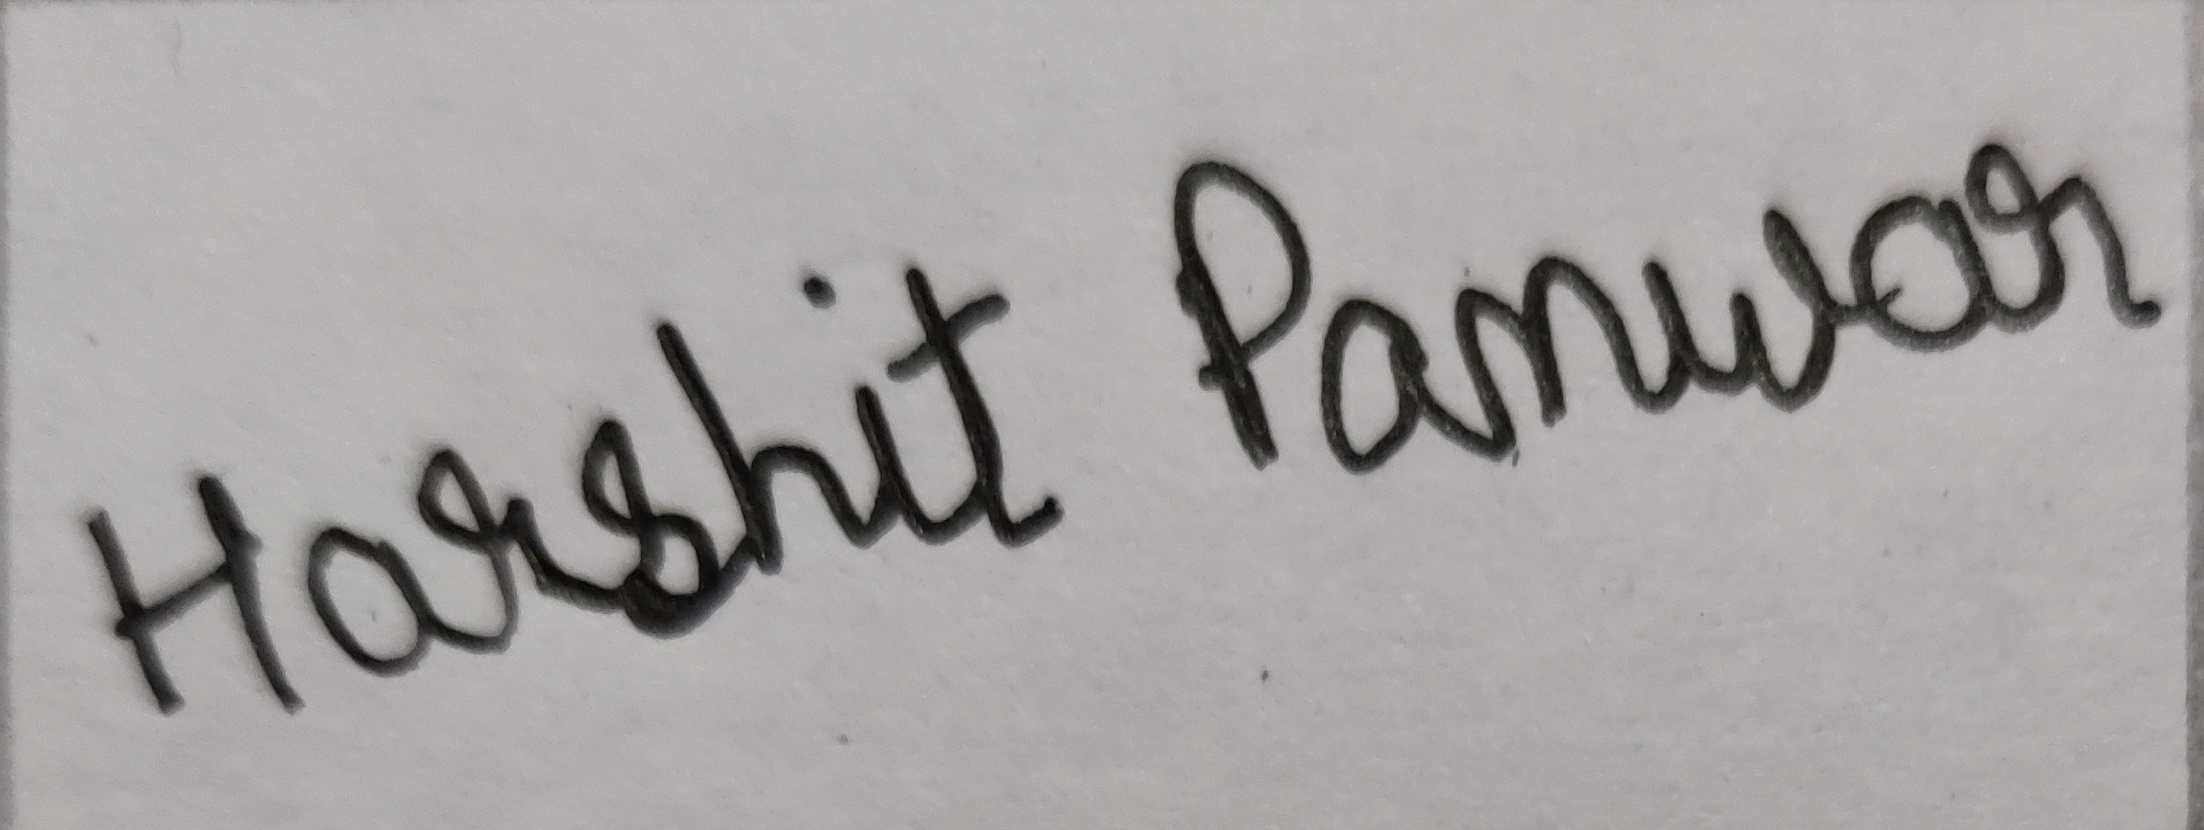 Harshit Panwar